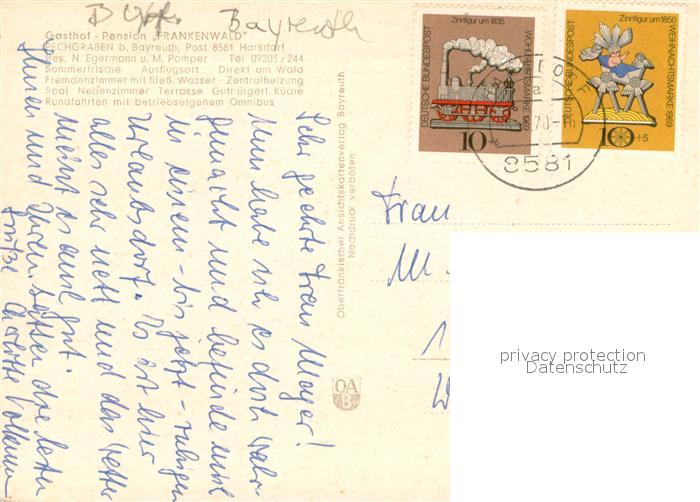 D Opf. Bayreuth
Gasthof - Pension "FRANKENWALD"
PECHGRABEN b. Bayreuth, Post 8581 Harsdorf
Bes. N. Egermann u. M. Pomper Tel 09203/244
Sommerfrische Ausflugsort Direkt am Wald
Fremdenzimmer mit fließ. Wasser - Zentralheizung
Saal Nebenzimmer Terrasse Gutbürgerl. Küche
Rundfahrten mit betriebseigenem Omnibus
Sehr geehrte Frau Mayer!
Nun habe ich es doch wahr
gemacht und befinde mich
in einem - bis jetzt - ruhigen
Urlaubsdorf. Es ist hier
alles sehr nett und das Wetter
meint es auch gut.
Ihnen und Ihrem Gatten die besten
Grüße
Oberfränkischer Ansichtskartenverlag Bayreuth
Nachdruck verboten
OA
B
Zinnfigur um 1835
DEUTSCHE BUNDESPOST
WOHLFAHRTSMARKE 1969
10+5
Zinnfigur um 1850
DEUTSCHE BUNDESPOST
WEIHNACHTSMARKE 1969
10+5
a
8581
Frau
M.
1
W
privacy protection
Datenschutz